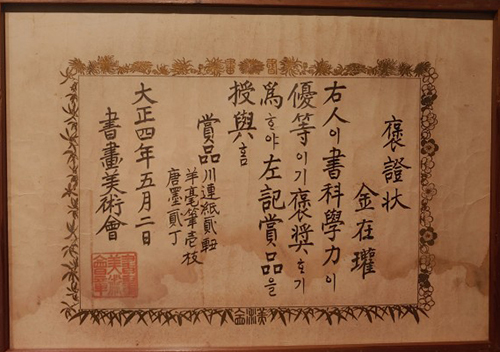 褒證状
金在瓘
右人이書科學力이
優等이기褒奬ᄒᆞ기
爲ᄒᆞ야左記賞品을
授與ᄒᆞᆷ
賞品川連紙貳軸
羊毫筆壱枝
唐墨貳丁
大正四年五月二日
書畫美術會